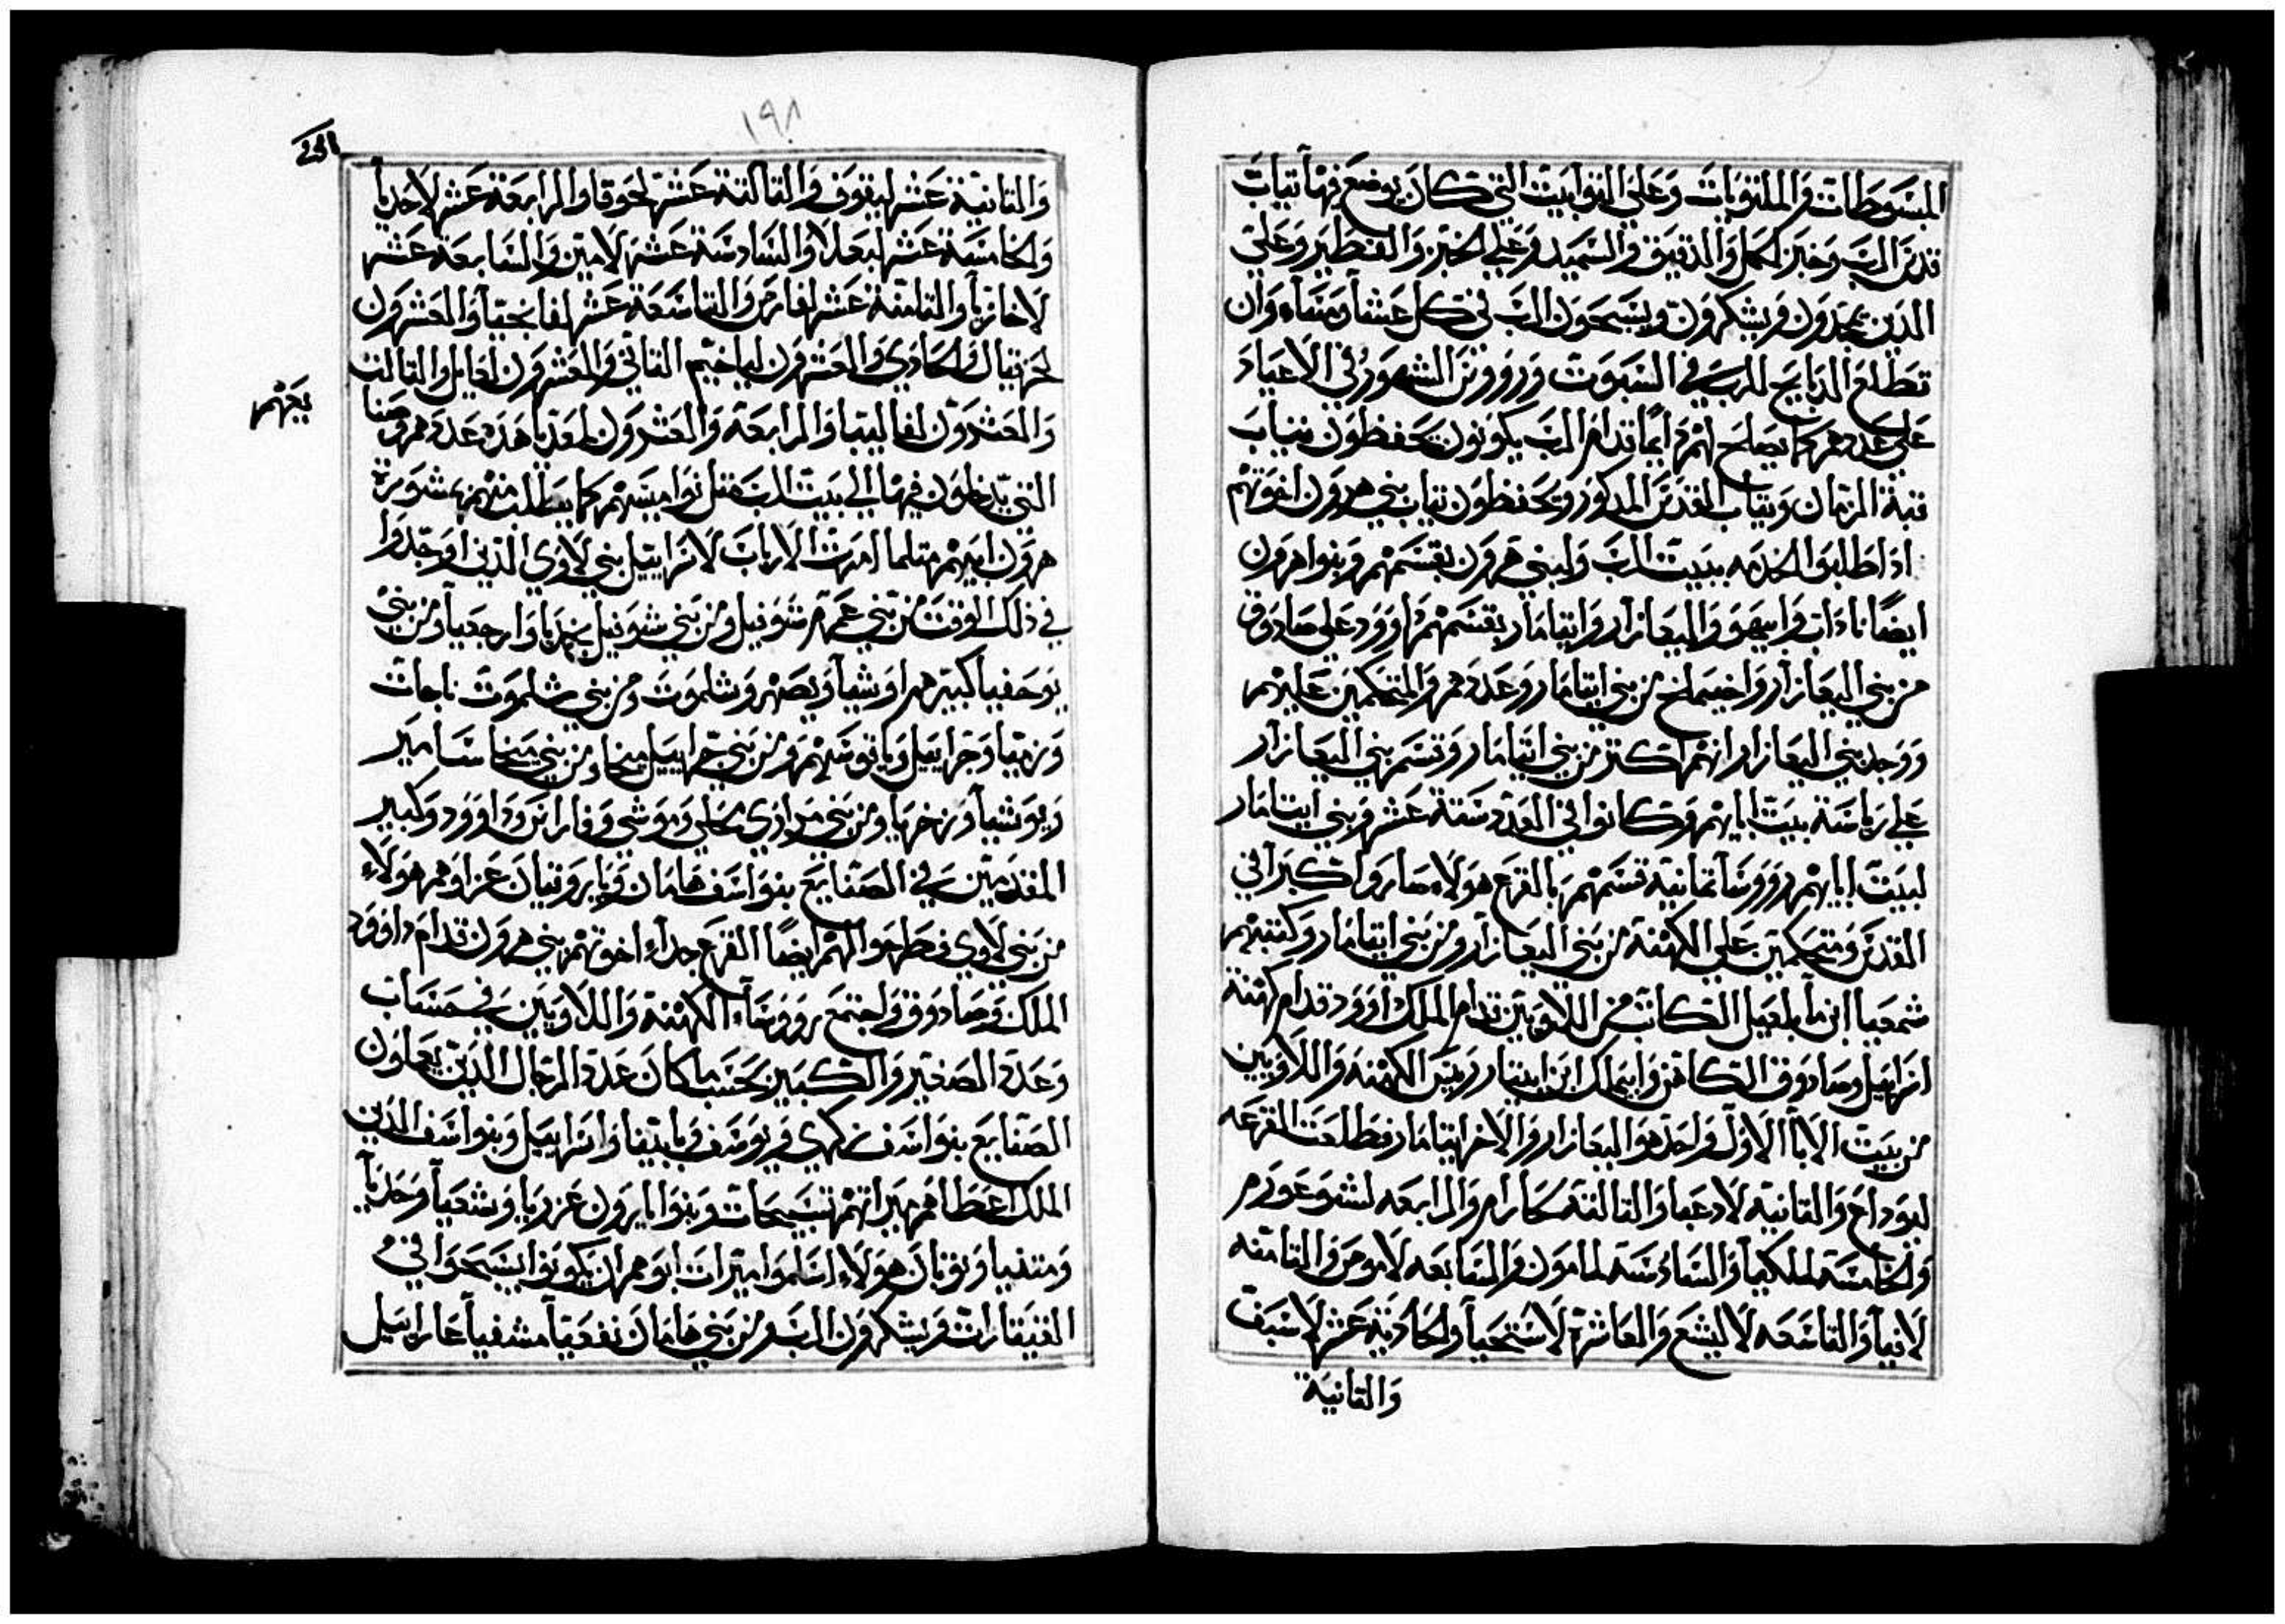 المبسوطات والملتوتات وعلى التوابيت التي كان يوضع فيها تياب
قدس الرب وخبز الحمل والدقيق والسميد وعلي الخبز والفطير وعلى
الدين يمجدون ويشكرون ويسبحون الرب في كل عشاً ومساء وان
تطلع الدبايح للرب في السبوت وروووس الشهور في الاعياد
على عددهم كما يصلح لهم دايماً قدام الرب يكونون يحفظون تياب
قبة الزمان وتياب القدس المدكور ويحفظون تياب بني هرون اخوتهم
ادا طلبوا الخدمه ببيت الرب ولبني هرون بقسمهم وبنوا هرون
ايضاً ناداب وابيهو واليعازار وايتامار بقسمهم داوود على صادوق
من بني اليعازار واخيمالخ من بني ايتامار وعددهم والمتحكمين عليهم
ووجد بني اليعازار انهم اكتر من بني ايتامار وقسم بني اليعازار
علي رياسة بيت ابايهم وكانوا في العدد ستة عشر وبني ايتامار
لبيت ابايهم رووسا تمانية قسمهم بالقرع هولاء صاروا اكبرا في
القدس ومتحكمين على الكهنة من بني اليعازار ومن بني ايتامار وكتبهم
شمعيا ابن مابلعيل الكاتب من اللاويين قدام الملك داوود قدام كهنة
اسراييل وصادوق الكاهن وابيملك ابن ابيتار رييس الكهنه واللاويين
من بيت الابا الاول واحد هو اليعازار والاخر ايتامار فطلعت القرعه
ليوداخ والتانيه لادعيا والتالته سكارام والرابعه لشوعورم
والخامسة لملكيا والسادسة لمامون والسابعه لاموص والتامنه
لابيا والتاسعه لاليشع والعاشرة لاستحيا والحادية عشر لاسبف
والتانية
١٩٨
231
والتانية عشر ليتوف والتالتة عشر لحوقا والرابعة عشر لاحديا
والخامسة عشر لبعلا والسادسة عشر لامين والسابعة عشر
لاخازيا والتامنة عشر لفارص والتاسعة عشر لفاتحيا والعشرون
لحزقيال والحادي والعشرون لياخيم التاني والعشرون لعامل والتالت
والعشرون لفاليتا والرابعة والعشرون لمعديا هده عددهم وصنا
يعهم
التي يدخلون فيها الي بيت الرب متل نواميسهم كما يطلب منهم بمشورة
هرون ابيهم متلما امرت الارباب لاسراييل بني لاوي الدين اوجدوا
في دلك الوقت من بني عمرم شوبيل ومن بني شوبيل يحديا وارجعيا ومن بني
يوحفيا كبيرهم اوشيا ويصهر وشلموت ومن بني شلموت ناحات
وزميا وجراييل وياتوسهم ومن بني جراييل ميخا ومن بني ميخا سامير
ويوشيا وزخريا ومن بني مرادي محلي وموشي وفارانس وداوود وكبير
المقدمين في الصنايع بنو اسف هامان وايرون تيان عزا وهم هولاء
من بني لاوي فطرحوا لهم ايضاً القرع جداء اخوتهم بني هرون قدام داوود
الملك وصادوق واجتمع رووساء الكهنة واللاويين في حساب
وعدد الصغير والكبير بحسب ما كان عدد الرجال الدين يعملون
الصنايع بنو اسف زكري ويوسف وباتيفا واسراييل وبنو اسف الدين
الملك اعطاهم ميراتهم تسبيحات وبنوا ايرون عزوريا وشعيا وحديا
ومتفيا وتوبان هولاء استلموا ميرات ابوهم ان يكونوا يسبحوا في
القيتارات ويشكرون الرب ومن بني هامان نفعيا مشفيا عاراييل